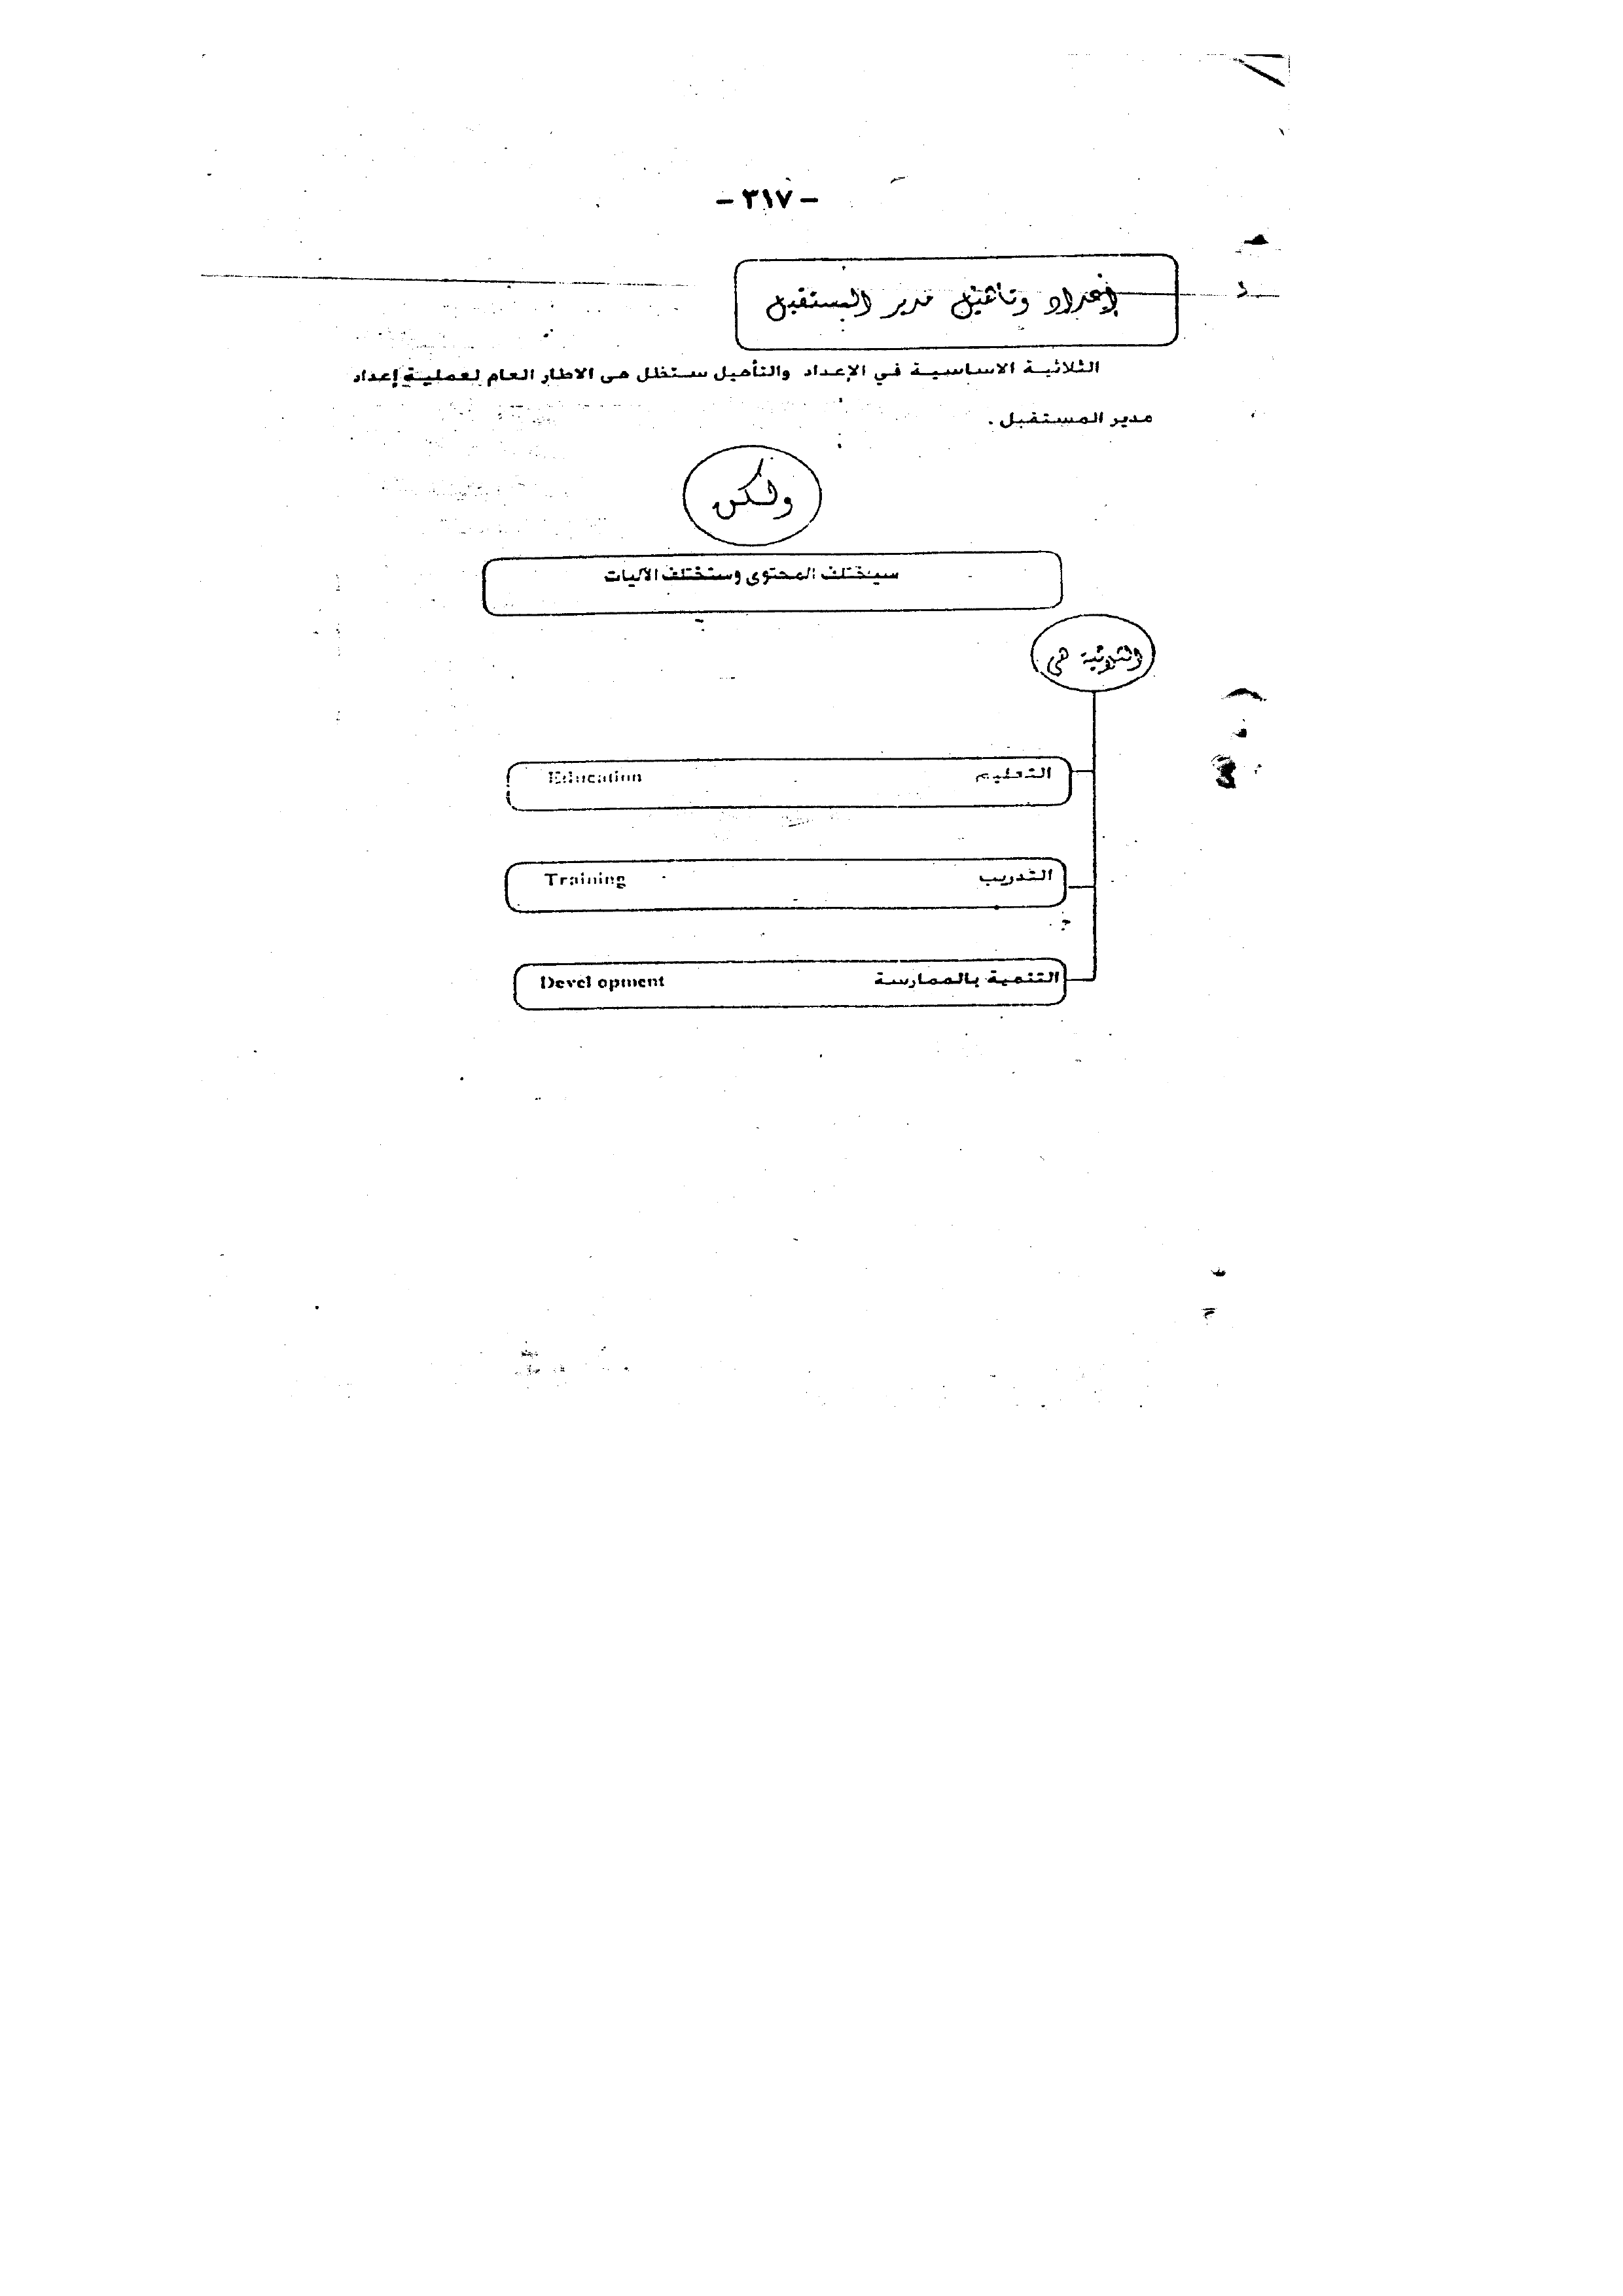 - ٣١٧ -
إعداد وتأهيل مدير المستقبل
الثلاثية الاساسية في الإعداد والتأهيل ستظل هى الاطار العام لعملية إعداد
مدير المستقبل .
ولكن
سيختلف المحتوى وستختلف الآليات
والثلاثية هى
التعليم Education
التدريب Training
التنمية بالممارسة Devel opment